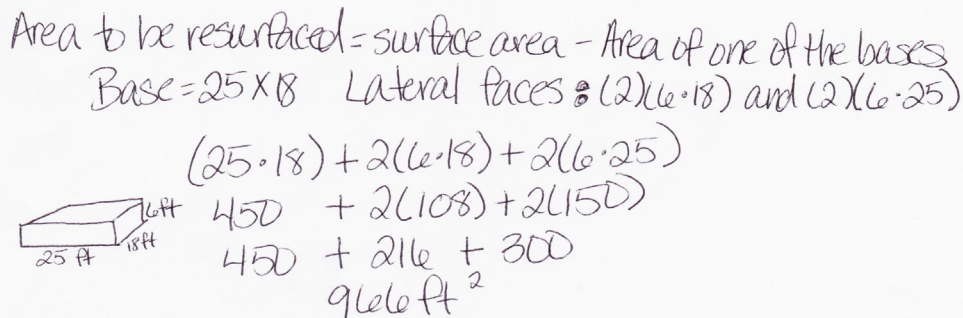 Area to be resurfaced = surface area - Area of one of the bases
Base = 25 X 18 Lateral faces : (2)(6·18) and (2)(6·25)
(25·18) + 2(6·18) + 2(6·25)
450 + 2(108) + 2(150)
6ft
18ft
25 ft
450 + 216 + 300
966 ft²